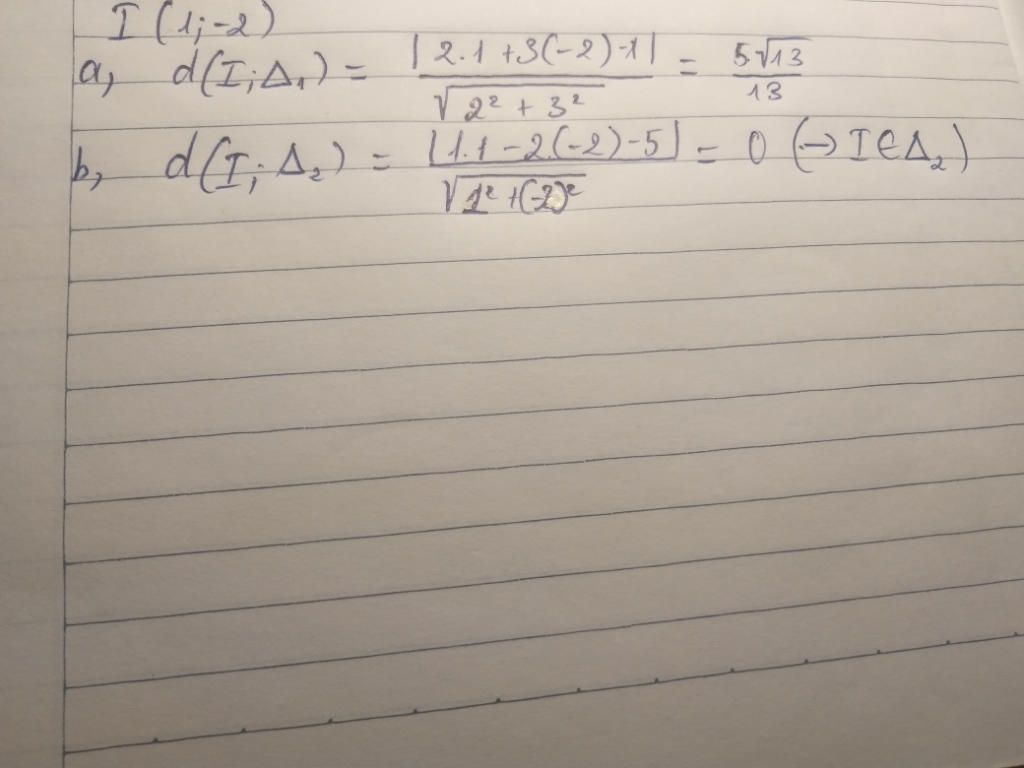 I (1; -2)
a, d(I; Δ₁) = |2.1 + 3(-2) - 1| / √(2² + 3²) = 5√13 / 13
b, d(I; Δ₂) = |1.1 - 2.(-2) - 5| / √(1² + (-2)²) = 0 (→ I ∈ Δ₂)